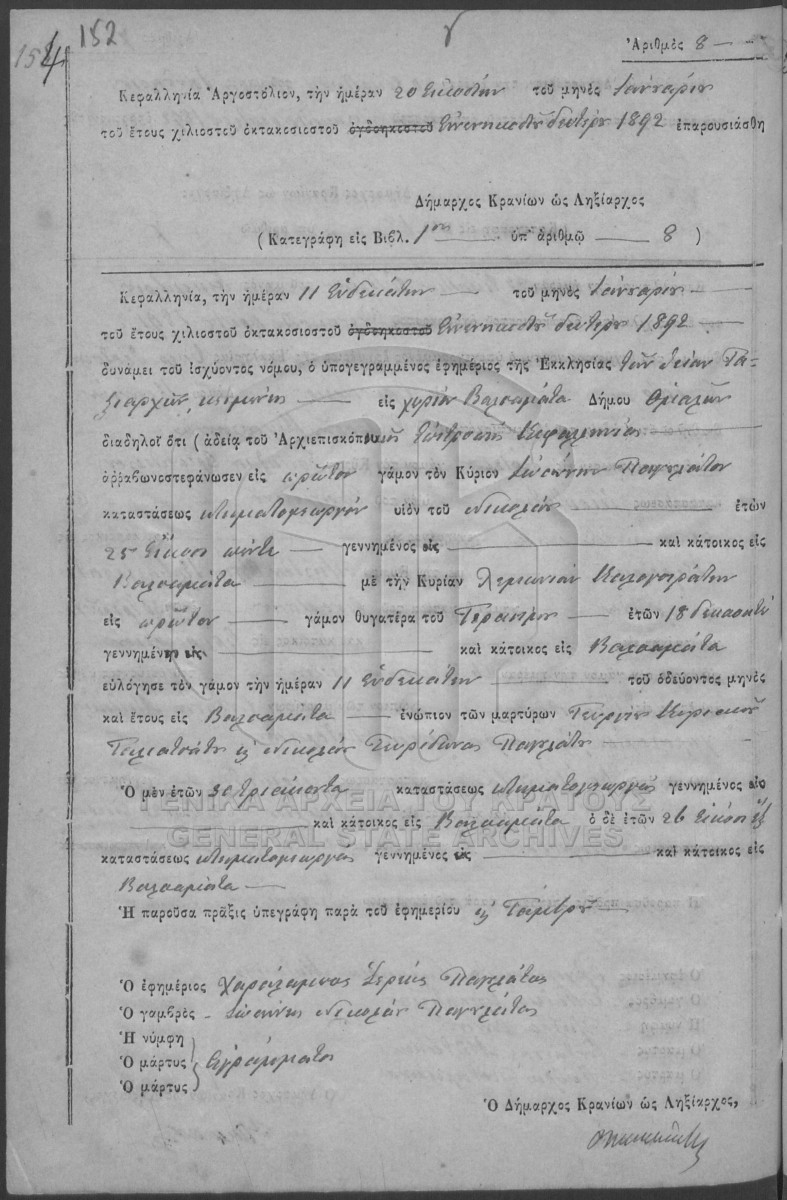 154 152
Ἀριθμὸς 8
Κεφαλληνία Ἀργοστόλιον, τὴν ἡμέραν 20 Εἰκοστήν τοῦ μηνὸς Ἰανουαρίου
τοῦ ἔτους χιλιοστοῦ ὀκτακοσιοστοῦ ὀγδοηκοστοῦ Ἐννενηκοστοῦ δευτέρου 1892 ἐπαρουσιάσθη
Δήμαρχος Κρανίων ὡς Ληξίαρχος
( Κατεγράφη εἰς Βιβλ. 1ον ὑπ' ἀριθμῷ 8 )
Κεφαλληνία, τὴν ἡμέραν 11 Ἑνδεκάτην τοῦ μηνὸς Ἰανουαρίου
τοῦ ἔτους χιλιοστοῦ ὀκτακοσιοστοῦ ὀγδοηκοστοῦ Ἐννενηκοστοῦ δευτέρου 1892
δυνάμει τοῦ ἰσχύοντος νόμου, ὁ ὑπογεγραμμένος ἐφημέριος τῆς Ἐκκλησίας τῶν Ἁγίων Τα-
ξιαρχῶν, κειμένης εἰς χωρίον Βαλσαμάτα Δήμου Ὁμαλῶν
διαδηλοῖ ὅτι ( ἀδείᾳ τοῦ Ἀρχιεπισκόπου τῆς Ἐπιτροπῆς Κεφαλληνίας
ἀρραβωνοστεφάνωσεν εἰς πρῶτον γάμον τὸν Κύριον Ἰωάννην Παγουλάτον
καταστάσεως κτηματογεωργόν υἱὸν τοῦ Νικολάου ἐτῶν
25 Εἴκοσι πέντε γεννημένος εἰς καὶ κάτοικος εἰς
Βαλσαμάτα μὲ τὴν Κυρίαν Λεμονιάν Καλογηράτου
εἰς πρῶτον γάμον θυγατέρα τοῦ Γερασίμου ἐτῶν 18 δεκαοκτώ
γεννημένη εἰς καὶ κάτοικος εἰς Βαλσαμάτα
εὐλόγησε τὸν γάμον τὴν ἡμέραν 11 Ἑνδεκάτην τοῦ ὁδεύοντος μηνὸς
καὶ ἔτους εἰς Βαλσαμάτα ἐνώπιον τῶν μαρτύρων Γεώργιον Κυριακοῦ
Γαλιατσάτου καὶ Νικολάου Σπυρίδωνος Παγουλάτου
Ὁ μὲν ἐτῶν 30 τριάκοντα καταστάσεως κτηματογεωργός γεννημένος εἰς
καὶ κάτοικος εἰς Βαλσαμάτα ὁ δὲ ἐτῶν 26 εἴκοσι ἕξ
καταστάσεως κτηματογεωργός γεννημένος εἰς καὶ κάτοικος εἰς
Βαλσαμάτα
Ἡ παροῦσα πρᾶξις ὑπεγράφη παρὰ τοῦ ἐφημερίου καὶ Γαμβροῦ
Ὁ ἐφημέριος Χαράλαμπος Ἱερεύς Παγουλάτος
Ὁ γαμβρὸς Ἰωάννης Νικολάου Παγουλάτος
Ἡ νύμφη
Ὁ μάρτυς ἀγράμματοι
Ὁ μάρτυς
Ὁ Δήμαρχος Κρανίων ὡς Ληξίαρχος,
ΓΕΝΙΚΑ ΑΡΧΕΙΑ ΤΟΥ ΚΡΑΤΟΥΣ
GENERAL STATE ARCHIVES